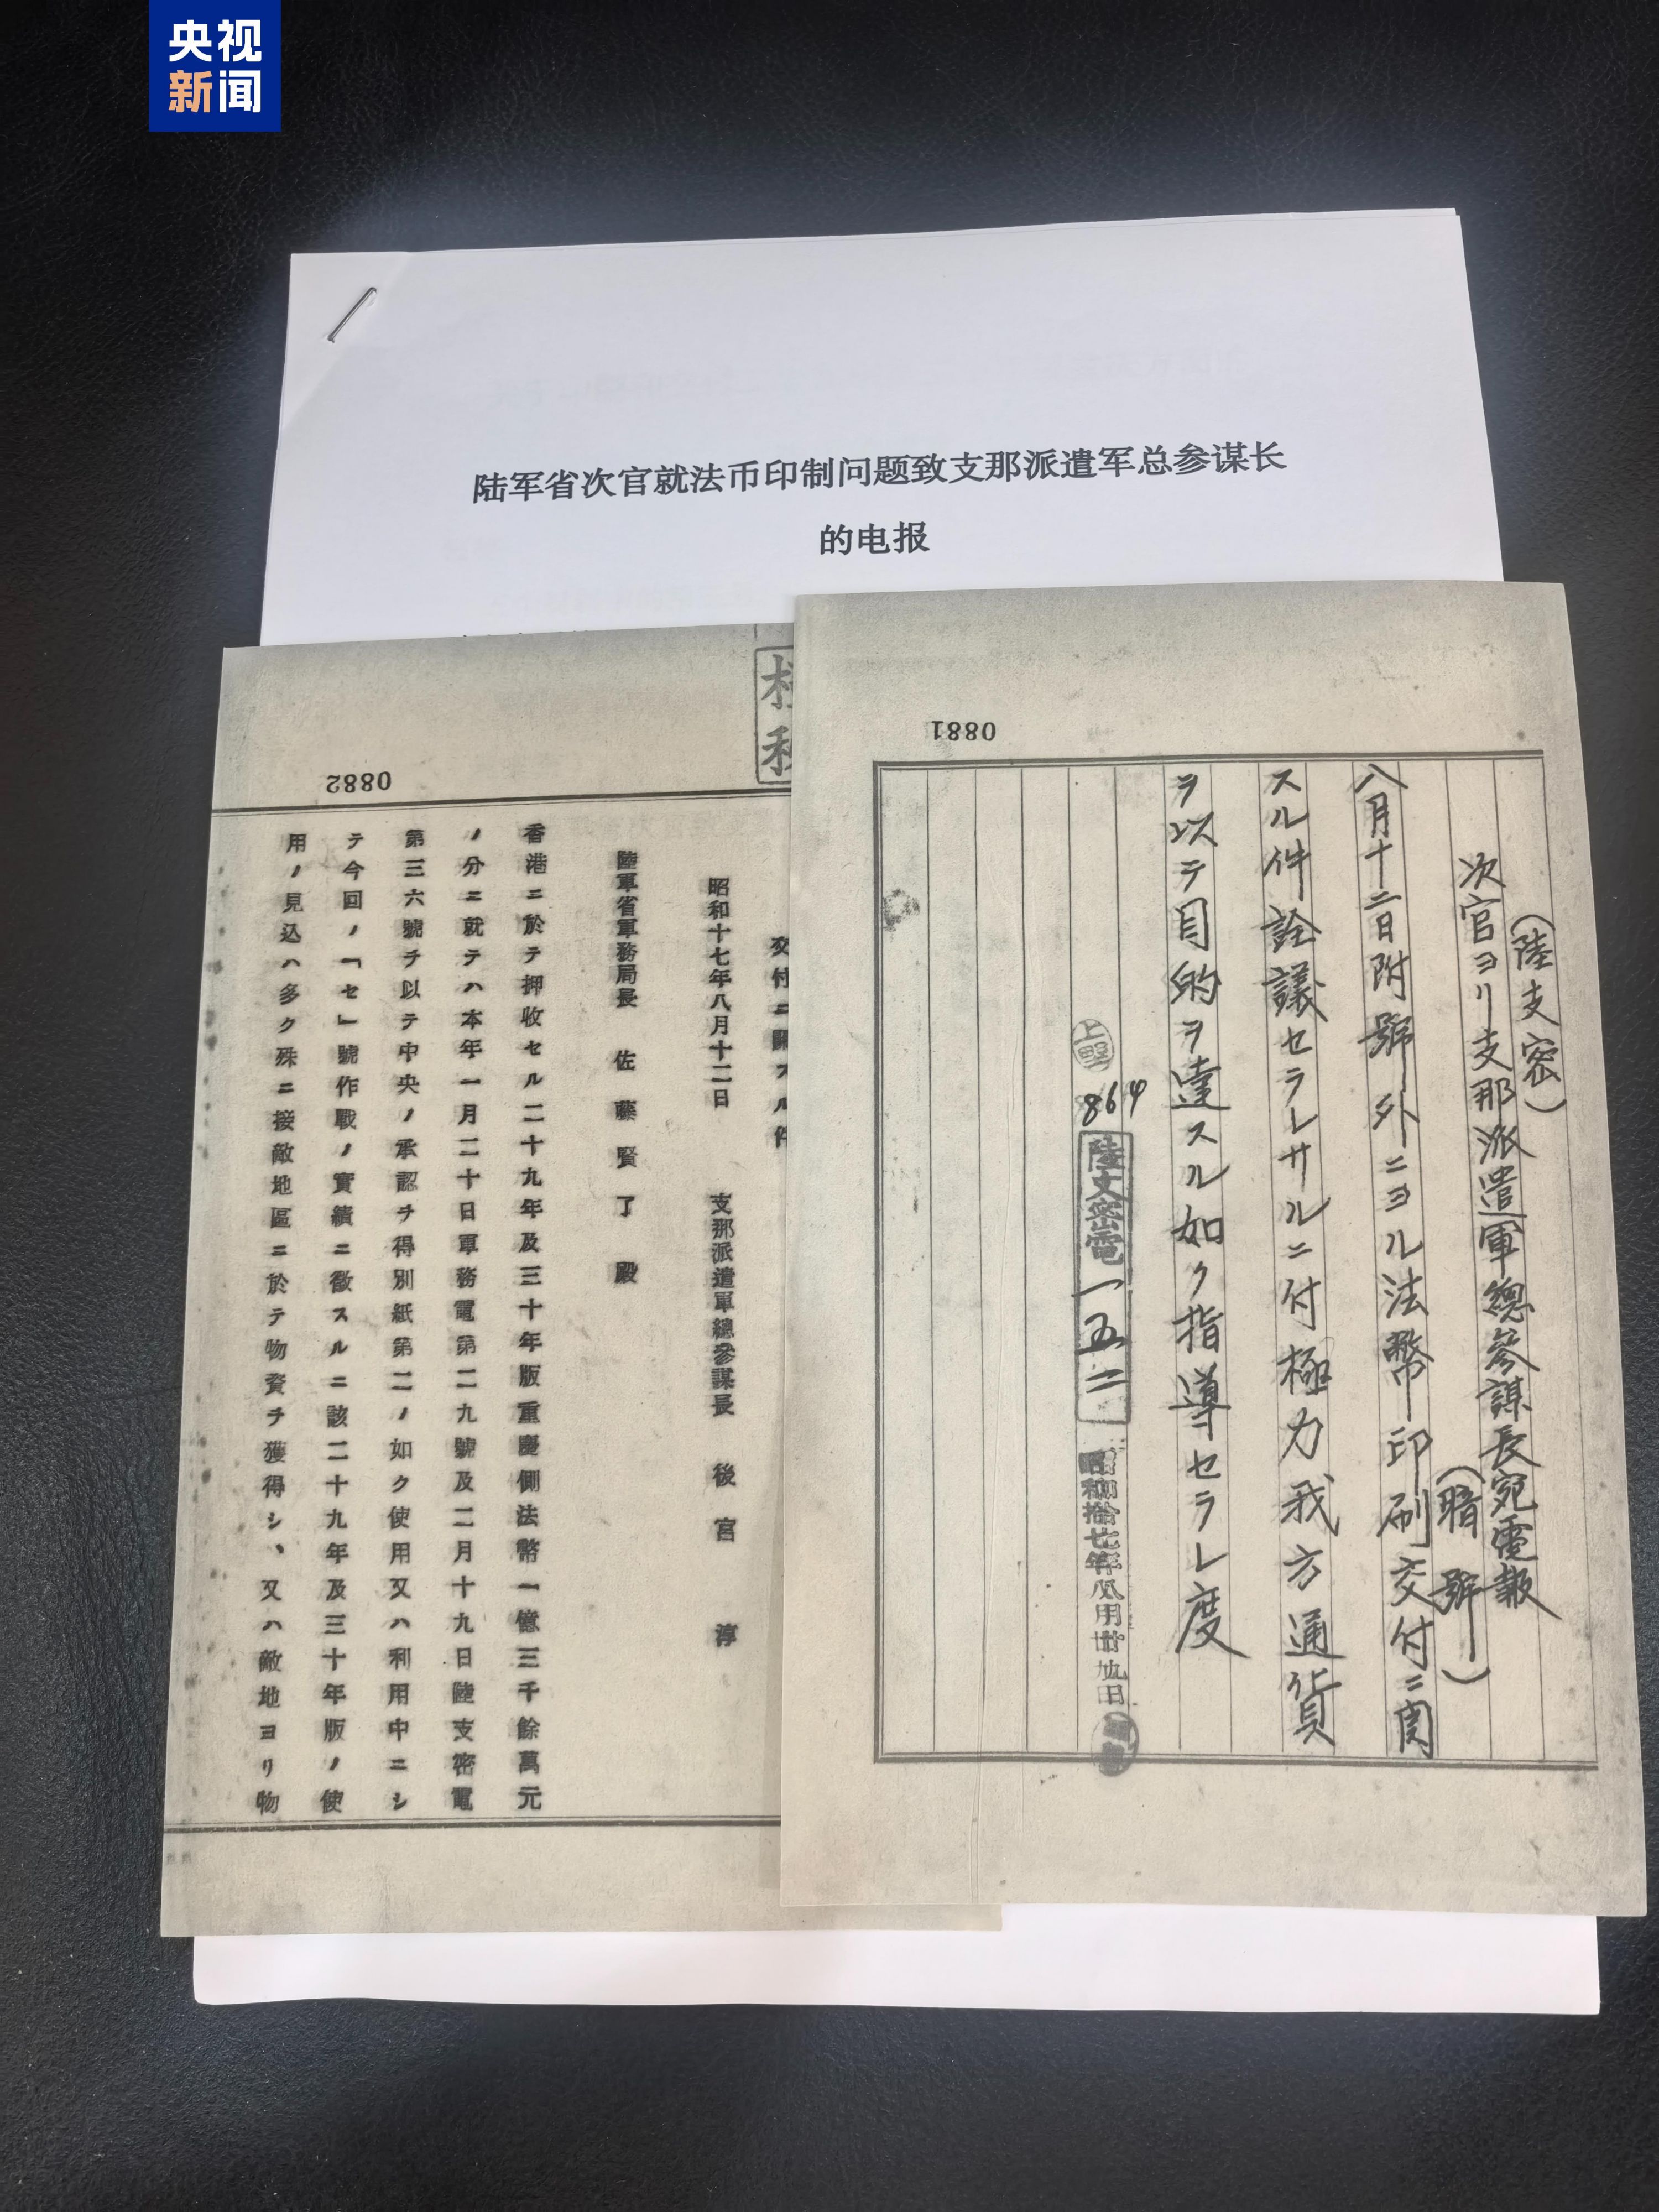 央视
新闻
陆军省次官就法币印制问题致支那派遣军总参谋长
的电报
0881
(陸支密)
次官ヨリ支那派遣軍總參謀長宛電報
(暗號)
八月十二日附號外ニヨル法幣印刷交付ニ関
スル件詮議セラレサルニ付極力我方通貨
ヲ以テ目的ヲ達スル如ク指導セラレ度
上野
864
陸支密電一五二
昭和拾七年八月廿九日
0882
交付ニ關スル件
昭和十七年八月十二日 支那派遣軍總參謀長 後宮 淳
陸軍省軍務局長 佐藤賢了殿
香港ニ於テ押收セル二十九年及三十年版重慶側法幣一億三千餘萬元
ノ分ニ就テハ本年一月二十日軍務電第二九號及二月十九日陸支密電
第三六號ヲ以テ中央ノ承認ヲ得別紙第二ノ如ク使用又ハ利用中ニシ
テ今回ノ「セ」號作戰ノ實績ニ徵スルニ該二十九年及三十年版ノ使
用ノ見込ハ多ク殊ニ接敵地區ニ於テ物資ヲ獲得シ、又ハ敵地ヨリ物